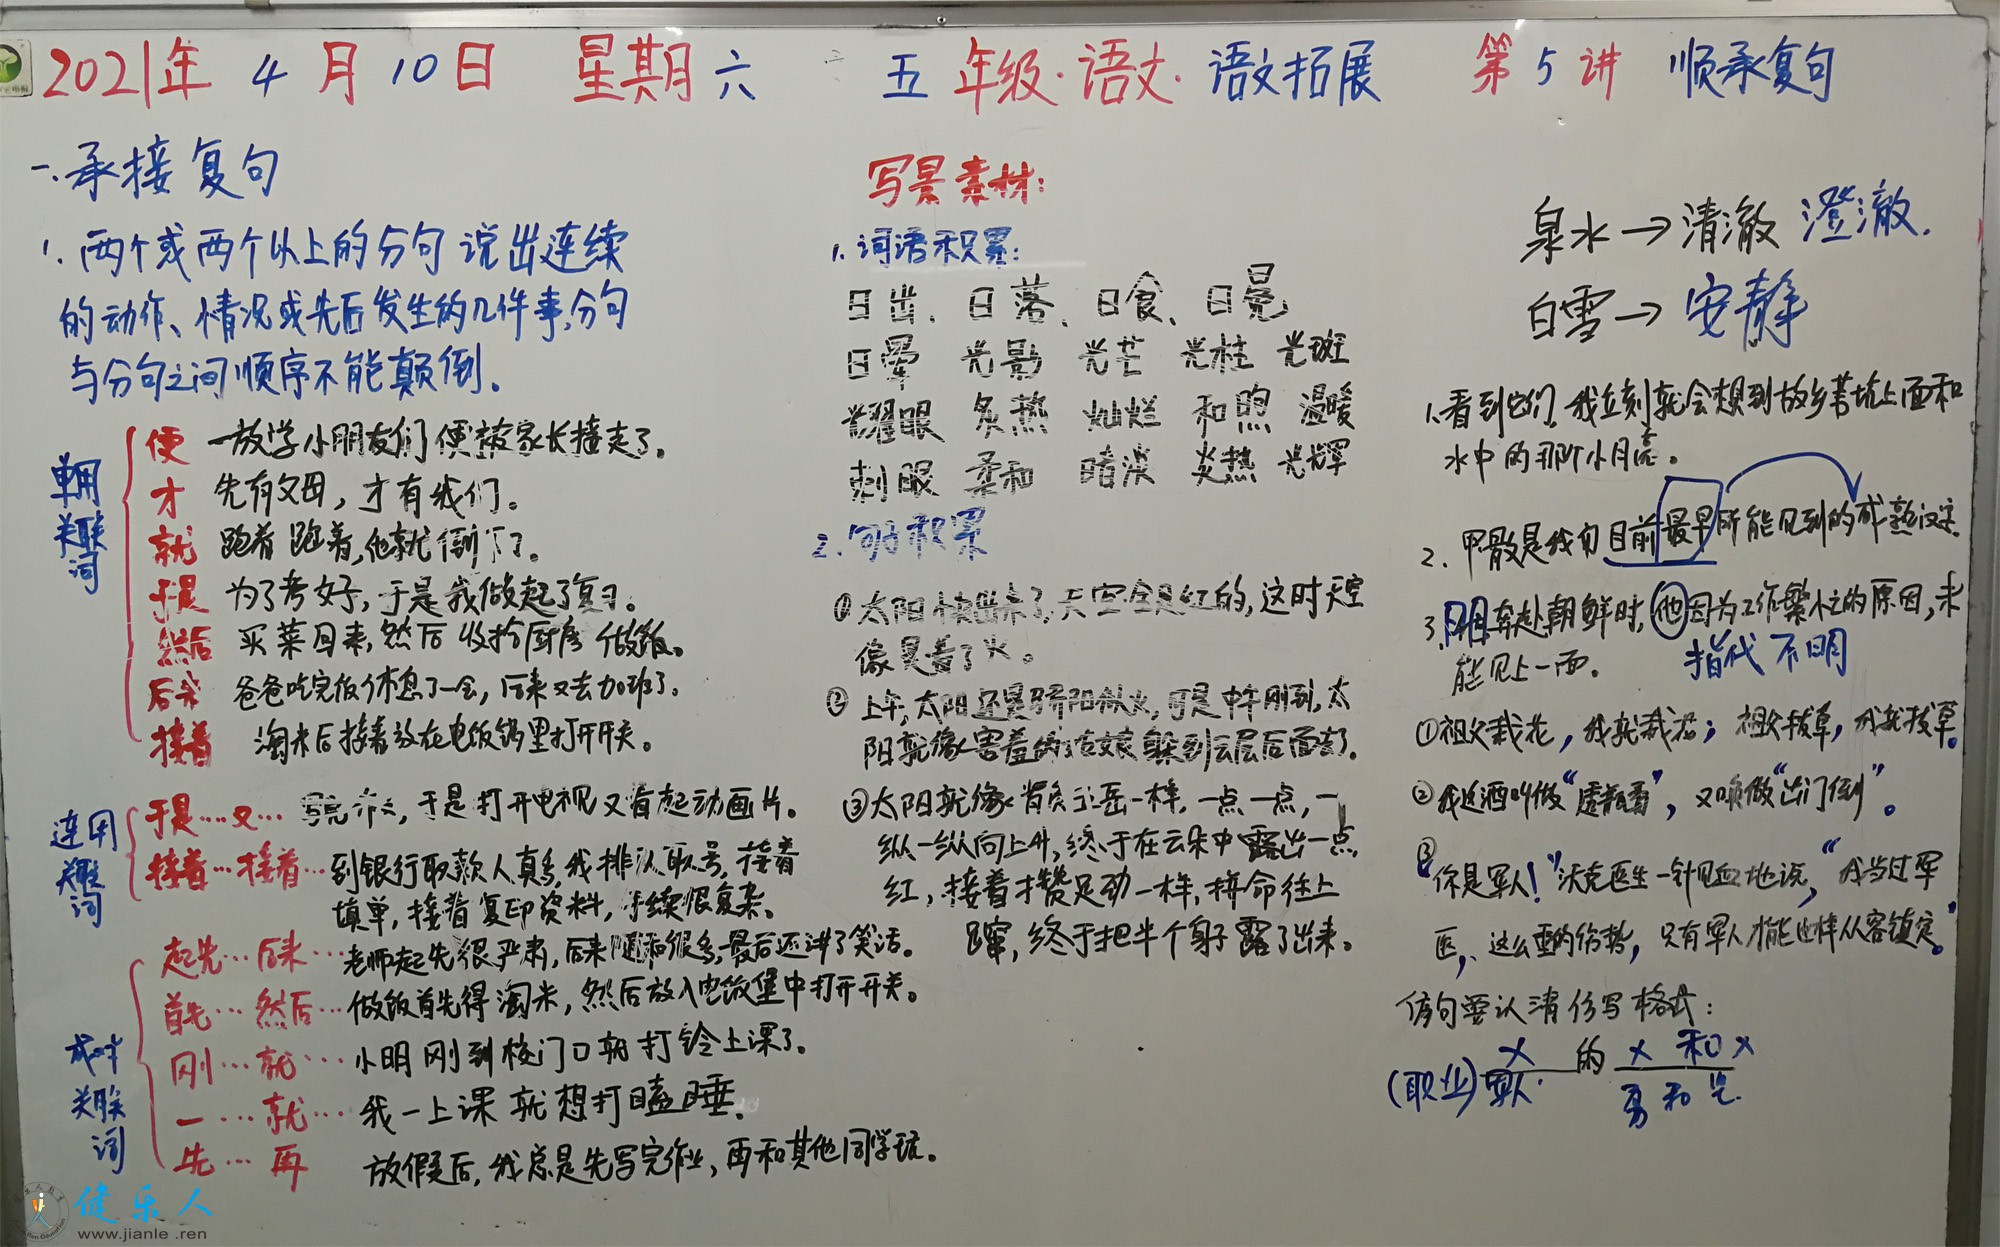 2021年 4月10日 星期六 五年级·语文·语文拓展 第5讲 顺承复句
一.承接复句
1.两个或两个以上的分句说出连续
的动作、情况或先后发生的几件事,分句
与分句之间顺序不能颠倒。
单用关联词
便 一放学小朋友们便被家长接走了。
才 先有父母,才有我们。
就 跑着跑着,他就倒下了。
于是 为了考好,于是我做起了复习。
然后 买菜回来,然后收拾厨房做饭。
后来 爸爸吃完饭休息了一会,后来又去加班了。
接着 淘米后接着放在电饭锅里打开开关。
连用关联词
于是…又… 于是打开电视又看起动画片。
接着…接着…到银行取款人真多,我排队取号,接着
填单,接着复印资料,手续很复杂。
成对关联词
起先…后来…老师起先很严肃,后来随和很多,最后还讲了笑话。
首先…然后…做饭首先得淘米,然后放入电饭煲中打开开关。
刚…就…小明刚到校门口就打铃上课了。
一…就…我一上课就想打瞌睡。
先…再 放假后,我总是先写完作业,再和其他同学玩。
写景素材:
1.词语积累:
日出、日落、日食、日冕
日晕 光影 光芒 光柱 光斑
耀眼 炙热 灿烂 和煦 温暖
刺眼 柔和 暗淡 炎热 光辉
2.句子积累
①太阳快出来了,天空全是红的,这时天空
像是着了火。
②上午,太阳还是骄阳似火,可是中午刚到,太
阳就像害羞的小姑娘躲到云层后面去了。
③太阳就像背负玉岳一样,一点一点,一
纵一纵向上升,终于在云朵中露出一点
红,接着才攒足劲一样,拼命往上
蹿,终于把半个身子露了出来。
泉水→清澈 澄澈.
白雪→安静
1.看到它们,我立刻就会想到故乡荸坑上面和
水中的那个小月亮。
2.甲骨是我们目前最早所能见到的成熟汉字.
3.奔赴朝鲜时,他因为工作繁忙的原因,未
能见上一面。 指代不明
①祖父栽花,我就栽花;祖父拔草,我就拔草。
②我这酒叫做“透瓶香”,又唤做“出门倒”。
③“你是军人!”沃克医生一针见血地说,“我当过军
医,这么重的伤势,只有军人才能这样从容镇定。”
仿句要认清仿写格式:
(职业) X 的 X 和 X
军人